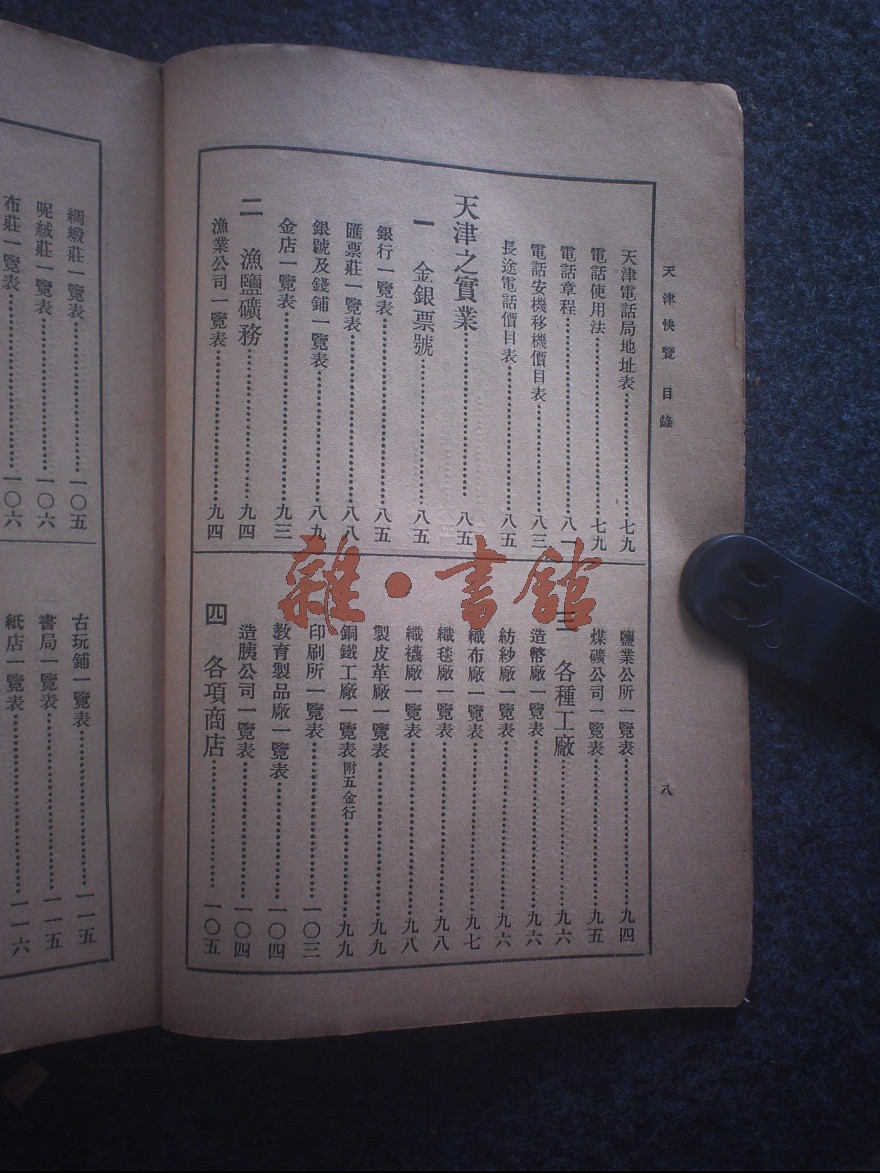 天津快覽 目錄
八
天津電話局地址表……七九
電話使用法……七九
電話章程……八一
電話安機移機價目表……八三
長途電話價目表……八五
天津之實業……八五
一 金銀票號……八五
銀行一覽表……八五
匯票莊一覽表……八八
銀號及錢鋪一覽表……八九
金店一覽表……九三
二 漁鹽礦務……九四
漁業公司一覽表……九四
鹽業公所一覽表……九四
煤礦公司一覽表……九五
三 各種工廠……九六
造幣廠一覽表……九六
紡紗廠一覽表……九六
織布廠一覽表……九七
織毯廠一覽表……九八
織襪廠一覽表……九八
製皮革廠一覽表……九九
銅鐵工廠一覽表附五金行……九九
印刷所一覽表……一〇三
教育製品廠一覽表……一〇四
造胰公司一覽表……一〇四
四 各項商店……一〇五
綢緞莊一覽表……一〇五
呢絨莊一覽表……一〇六
布莊一覽表……一〇六
古玩鋪一覽表……一一五
書局一覽表……一一五
紙店一覽表……一一六
雜·書館